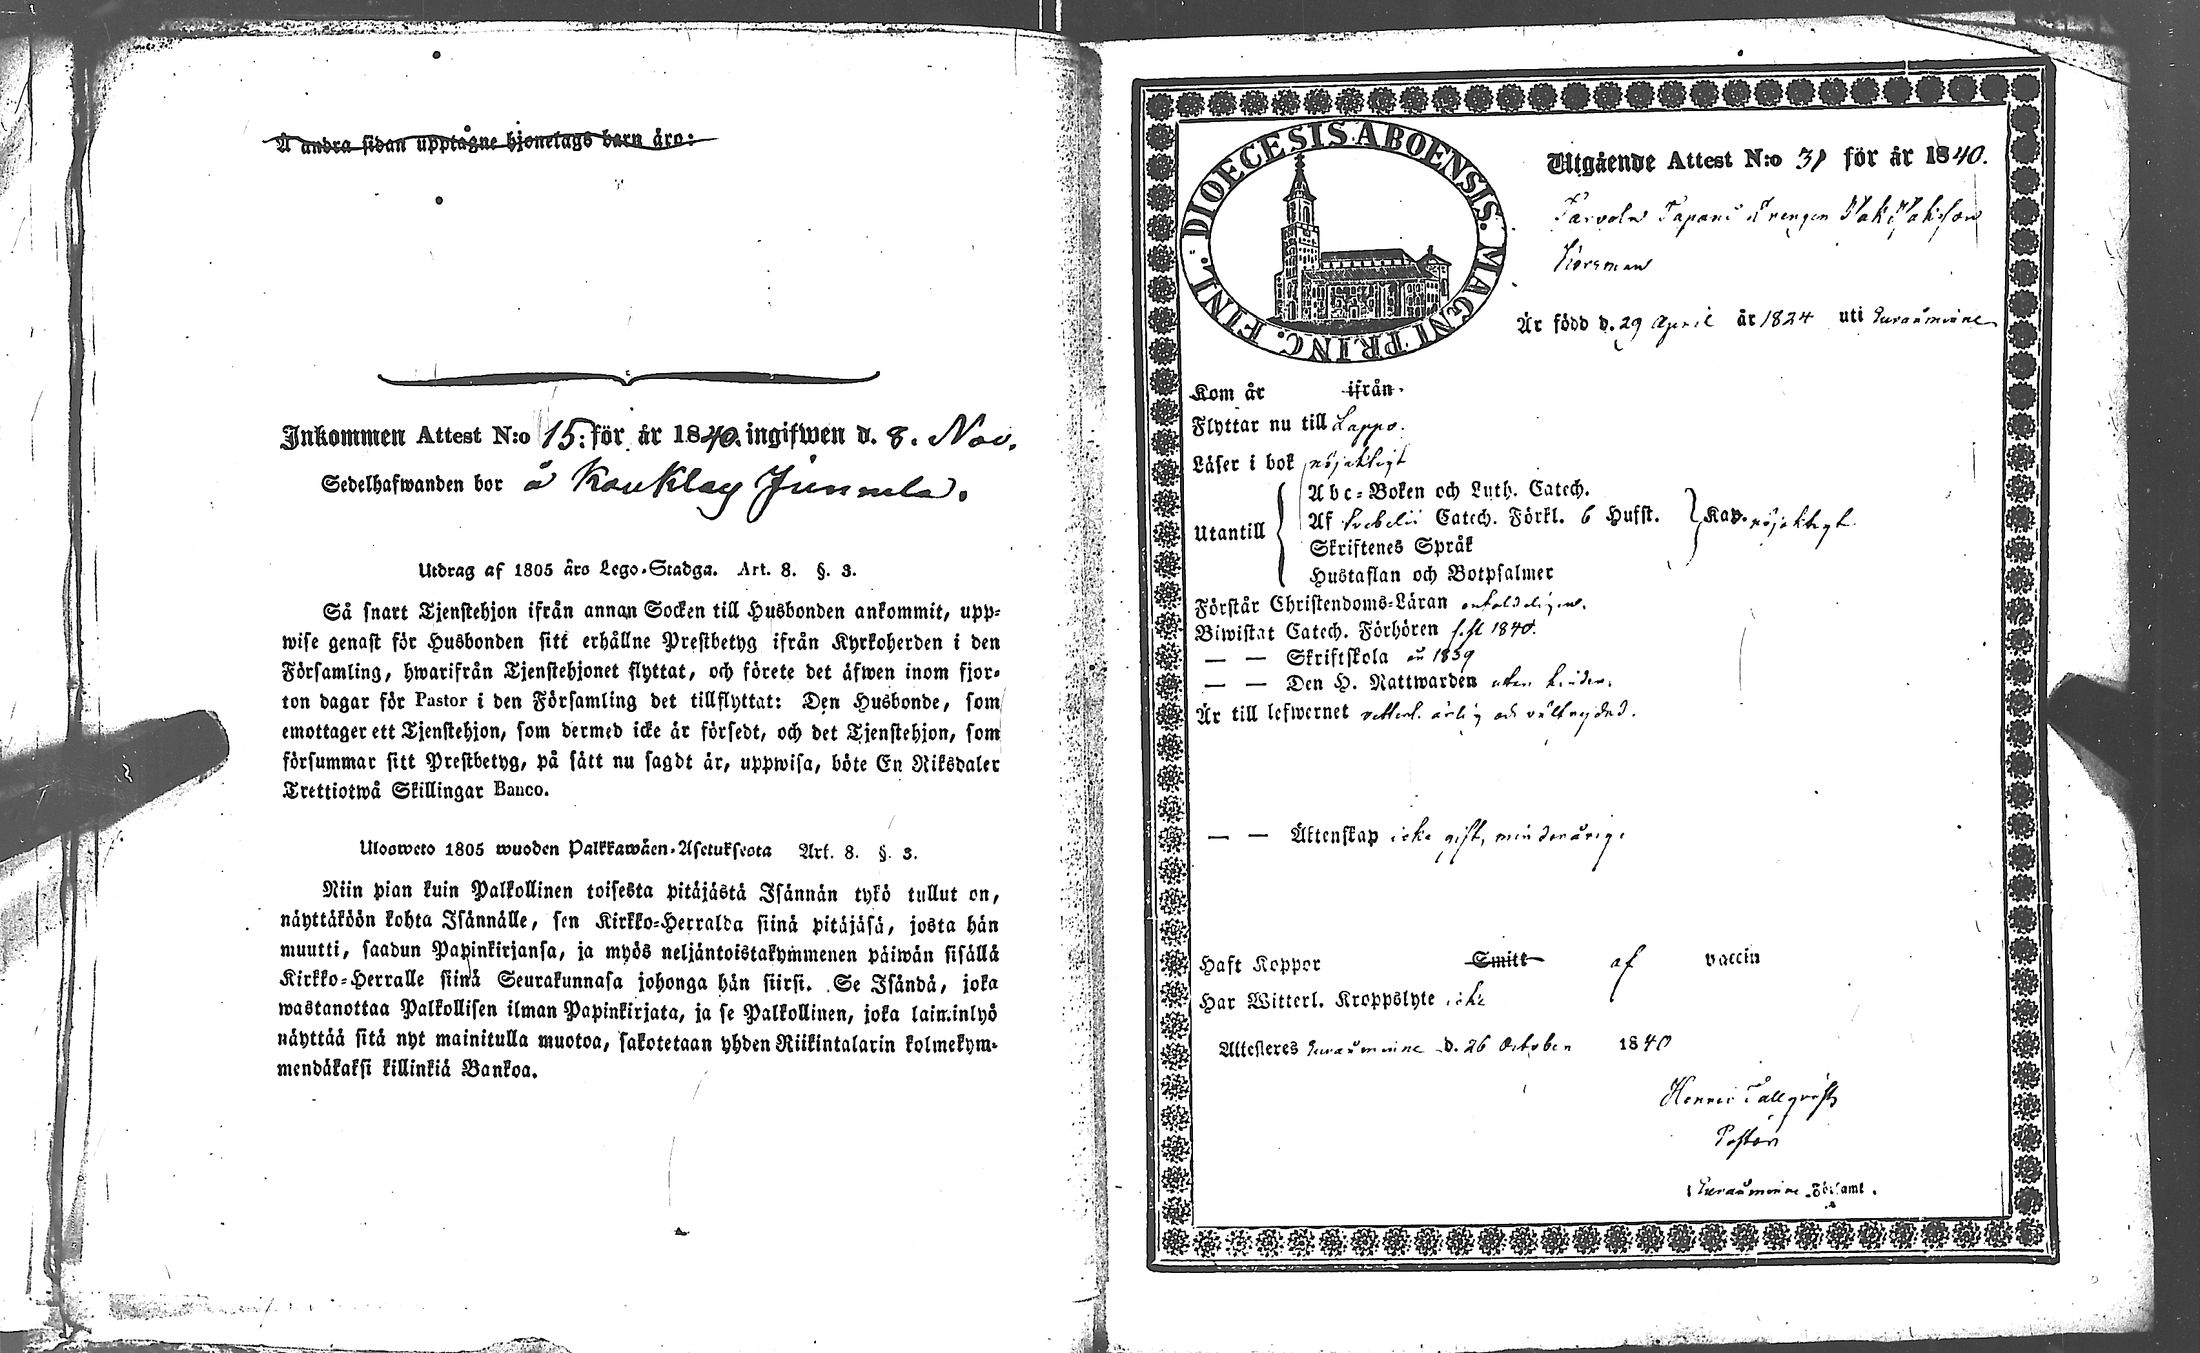 Å andra sidan upptagne hjonelags barn äro:
Inkommen Attest N:o 15: för år 1840. ingifwen d. 8. Nov.
Sedelhafwanden bor å Kauklax Junnila.
Utdrag af 1805 års Lego-Stadga. Art. 8. §. 3.
Så snart Tjenstehjon ifrån annan Socken till Husbonden ankommit, upp=
wise genast för Husbonden sitt erhållne Prestbetyg ifrån Kyrkoherden i den
Församling, hwarifrån Tjenstehjonet flyttat, och förete det äfwen inom fjor=
ton dagar för Pastor i den Församling det tillflyttat: Den Husbonde, som
emottager ett Tjenstehjon, som dermed icke är försedt, och det Tjenstehjon, som
försummar sitt Prestbetyg, på sätt nu sagdt är, uppwisa, böte En Riksdaler
Trettiotwå Skillingar Banco.
Ulosweto 1805 wuoden Palkkawäen-Asetuksesta Art. 8. §. 3.
Niin pian kuin Palkollinen toisesta pitäjästä Isännän tykö tullut on,
näyttäköön kohta Isännälle, sen Kirkko=Herralda siinä pitäjäsä, josta hän
muutti, saadun Papinkirjansa, ja myös neljäntoistakymmenen päiwän sisällä
Kirkko=Herralle siinä Seurakunnasa johonga hän siirsi. Se Isändä, joka
wastanottaa Palkollisen ilman Papinkirjata, ja se Palkollinen, joka laiminlyö
näyttää sitä nyt mainitulla muotoa, sakotetaan yhden Riikintalarin kolmekym=
mendäkaksi killinkiä Bankoa.
DIOECESIS ABOENSIS. MAGNI PRINC. FINL.
Utgående Attest N:o 31 för år 1840.
Tapani Drengen Jak Jaksson
Korsman
Är född d. 29 April år 1824 uti Euraåminne
Kom år ifrån
Flyttar nu till Lappo.
Läser i bok nöjaktigt
Utantill
Abc=Boken och Luth. Catech.
Af Svebelii Catech. Förkl. 6 Hufst.
Skriftenes Språk
Hustaflan och Botpsalmer
Kap. nöjaktigt
Förstår Christendoms=Läran enfaldeligen.
Biwistat Catech. Förhören sist 1840.
— — Skriftskola år 1839
— — Den H. Nattwarden utan hinder.
Är till lefwernet vetterl. ärlig och välfrejdad.
— — Äktenskap icke gift, minderårig.
Haft Koppor Smitt af vaccin
Har Witterl. Kroppslyte icke
Attesteres Euraåminne d. 26 October 1840
Henric Tallqvist
Pastor
i Euraåminne Förs:aml.